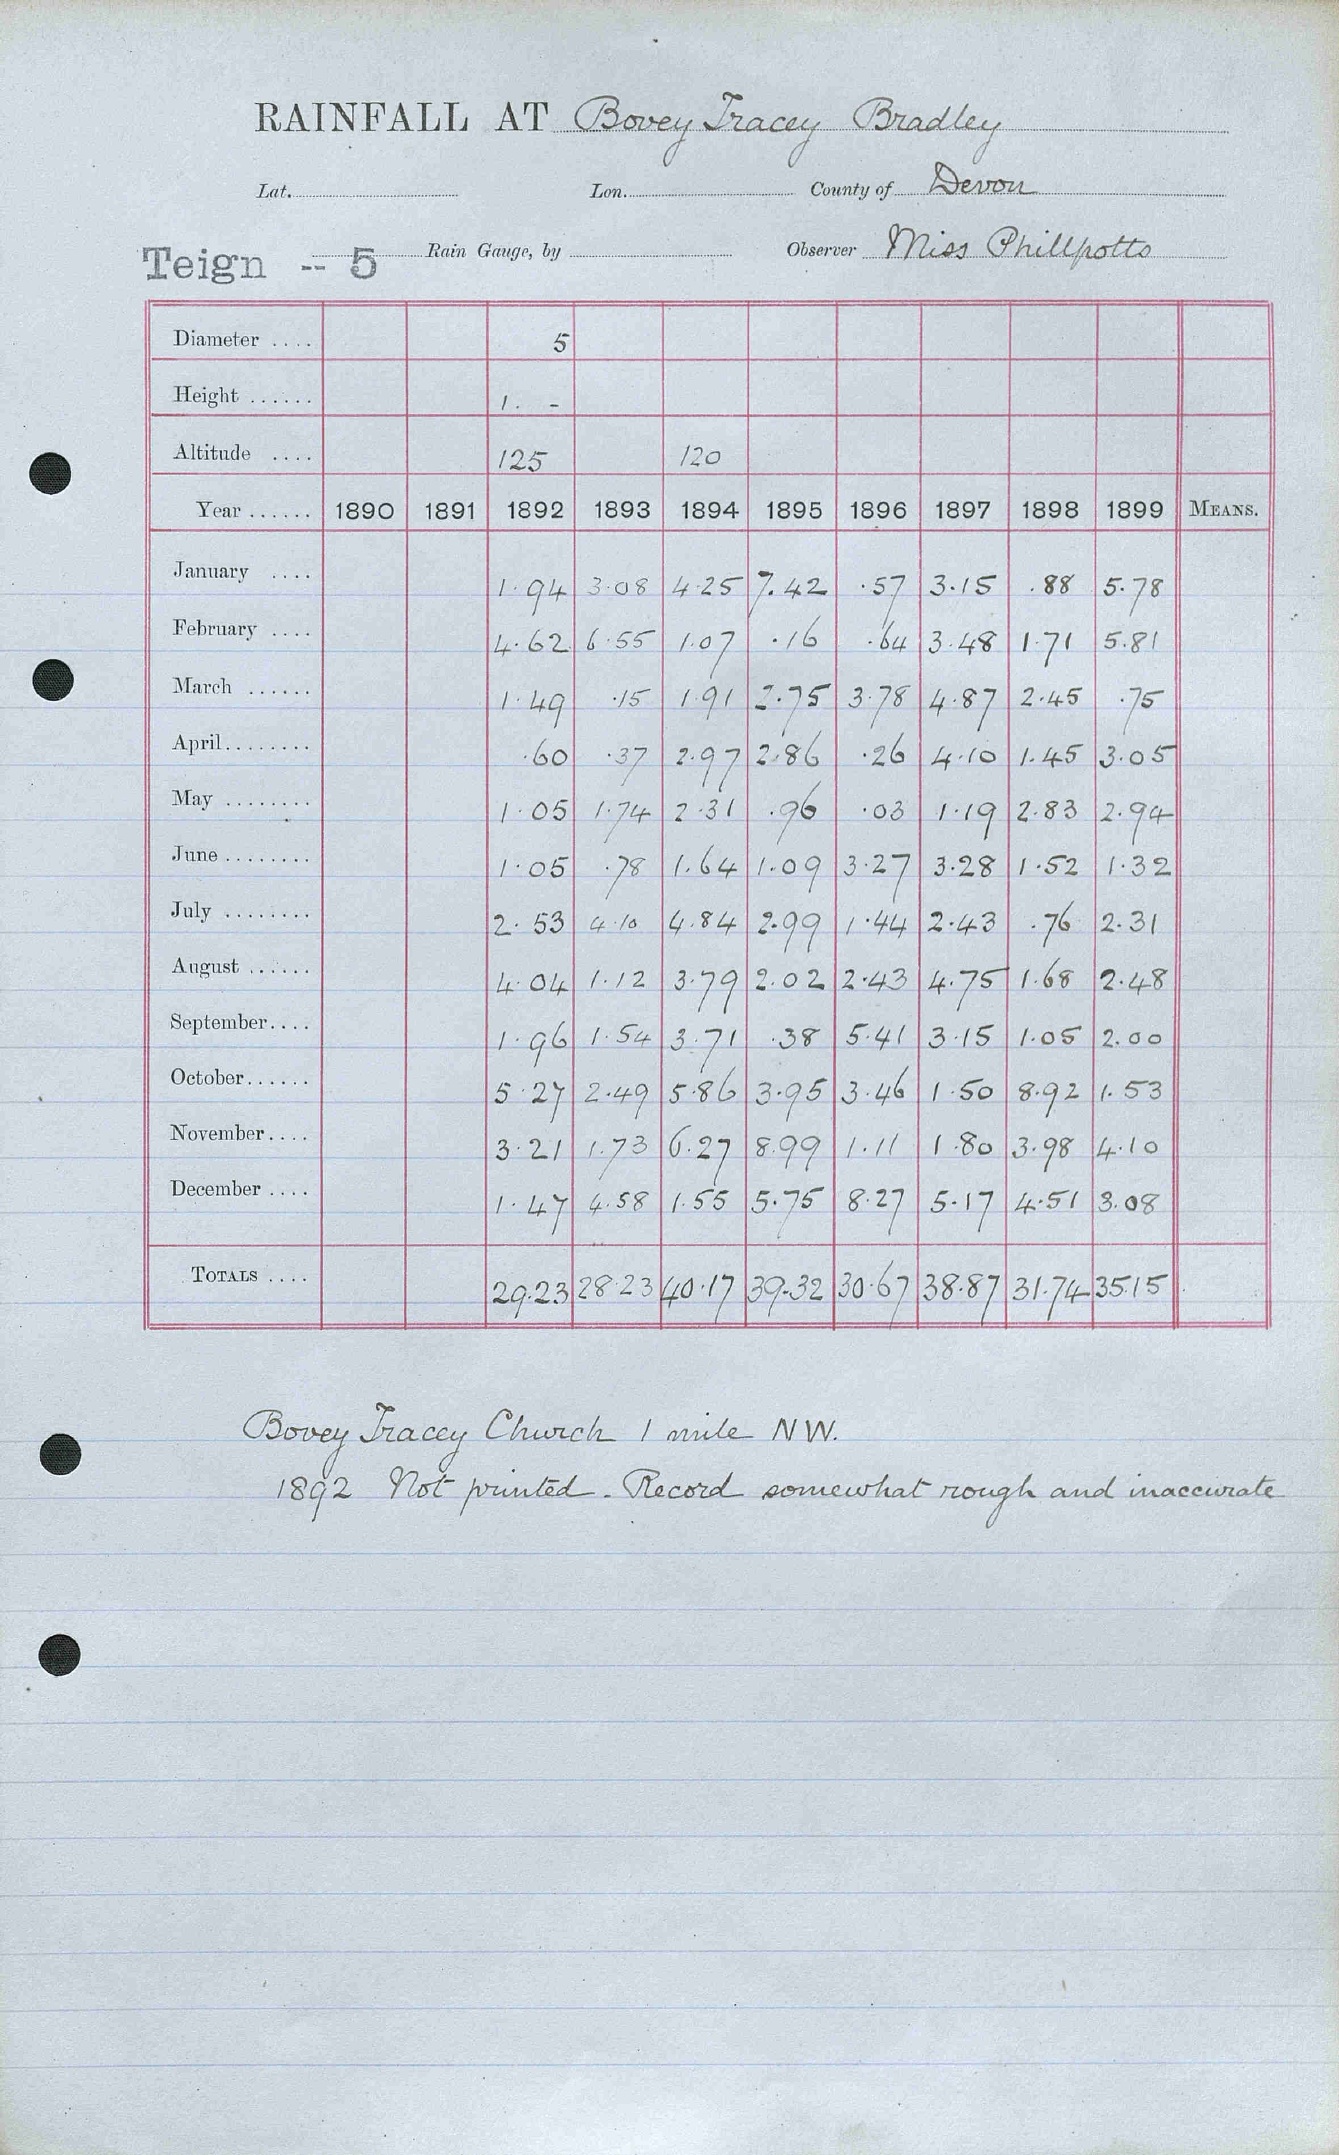 RAINFALL AT Bovey Tracey Bradley
Lat. Lon. County of Devon
Teign -- 5 Rain Gauge, by Observer Miss Phillpotts
Diameter .... 5
Height ...... 1. -
Altitude .... 125 120
Year ...... 1890 1891 1892 1893 1894 1895 1896 1897 1898 1899 MEANS.
January .... 1.94 3.08 4.25 7.42 .57 3.15 .88 5.78
February .... 4.62 6.55 1.07 .16 .64 3.48 1.71 5.81
March ...... 1.49 .15 1.91 2.75 3.78 4.87 2.45 .75
April........ .60 .37 2.97 2.86 .26 4.10 1.45 3.05
May ........ 1.05 1.74 2.31 .96 .03 1.19 2.83 2.94
June ........ 1.05 .78 1.64 1.09 3.27 3.28 1.52 1.32
July ........ 2.53 4.10 4.84 2.99 1.44 2.43 .76 2.31
August ...... 4.04 1.12 3.79 2.02 2.43 4.75 1.68 2.48
September.... 1.96 1.54 3.71 .38 5.41 3.15 1.05 2.00
October...... 5.27 2.49 5.86 3.95 3.46 1.50 8.92 1.53
November.... 3.21 1.73 6.27 8.99 1.11 1.80 3.98 4.10
December .... 1.47 4.58 1.55 5.75 8.27 5.17 4.51 3.08
TOTALS .... 29.23 28.23 40.17 39.32 30.67 38.87 31.74 35.15
Bovey Tracey Church 1 mile NW.
1892 Not printed. Record somewhat rough and inaccurate